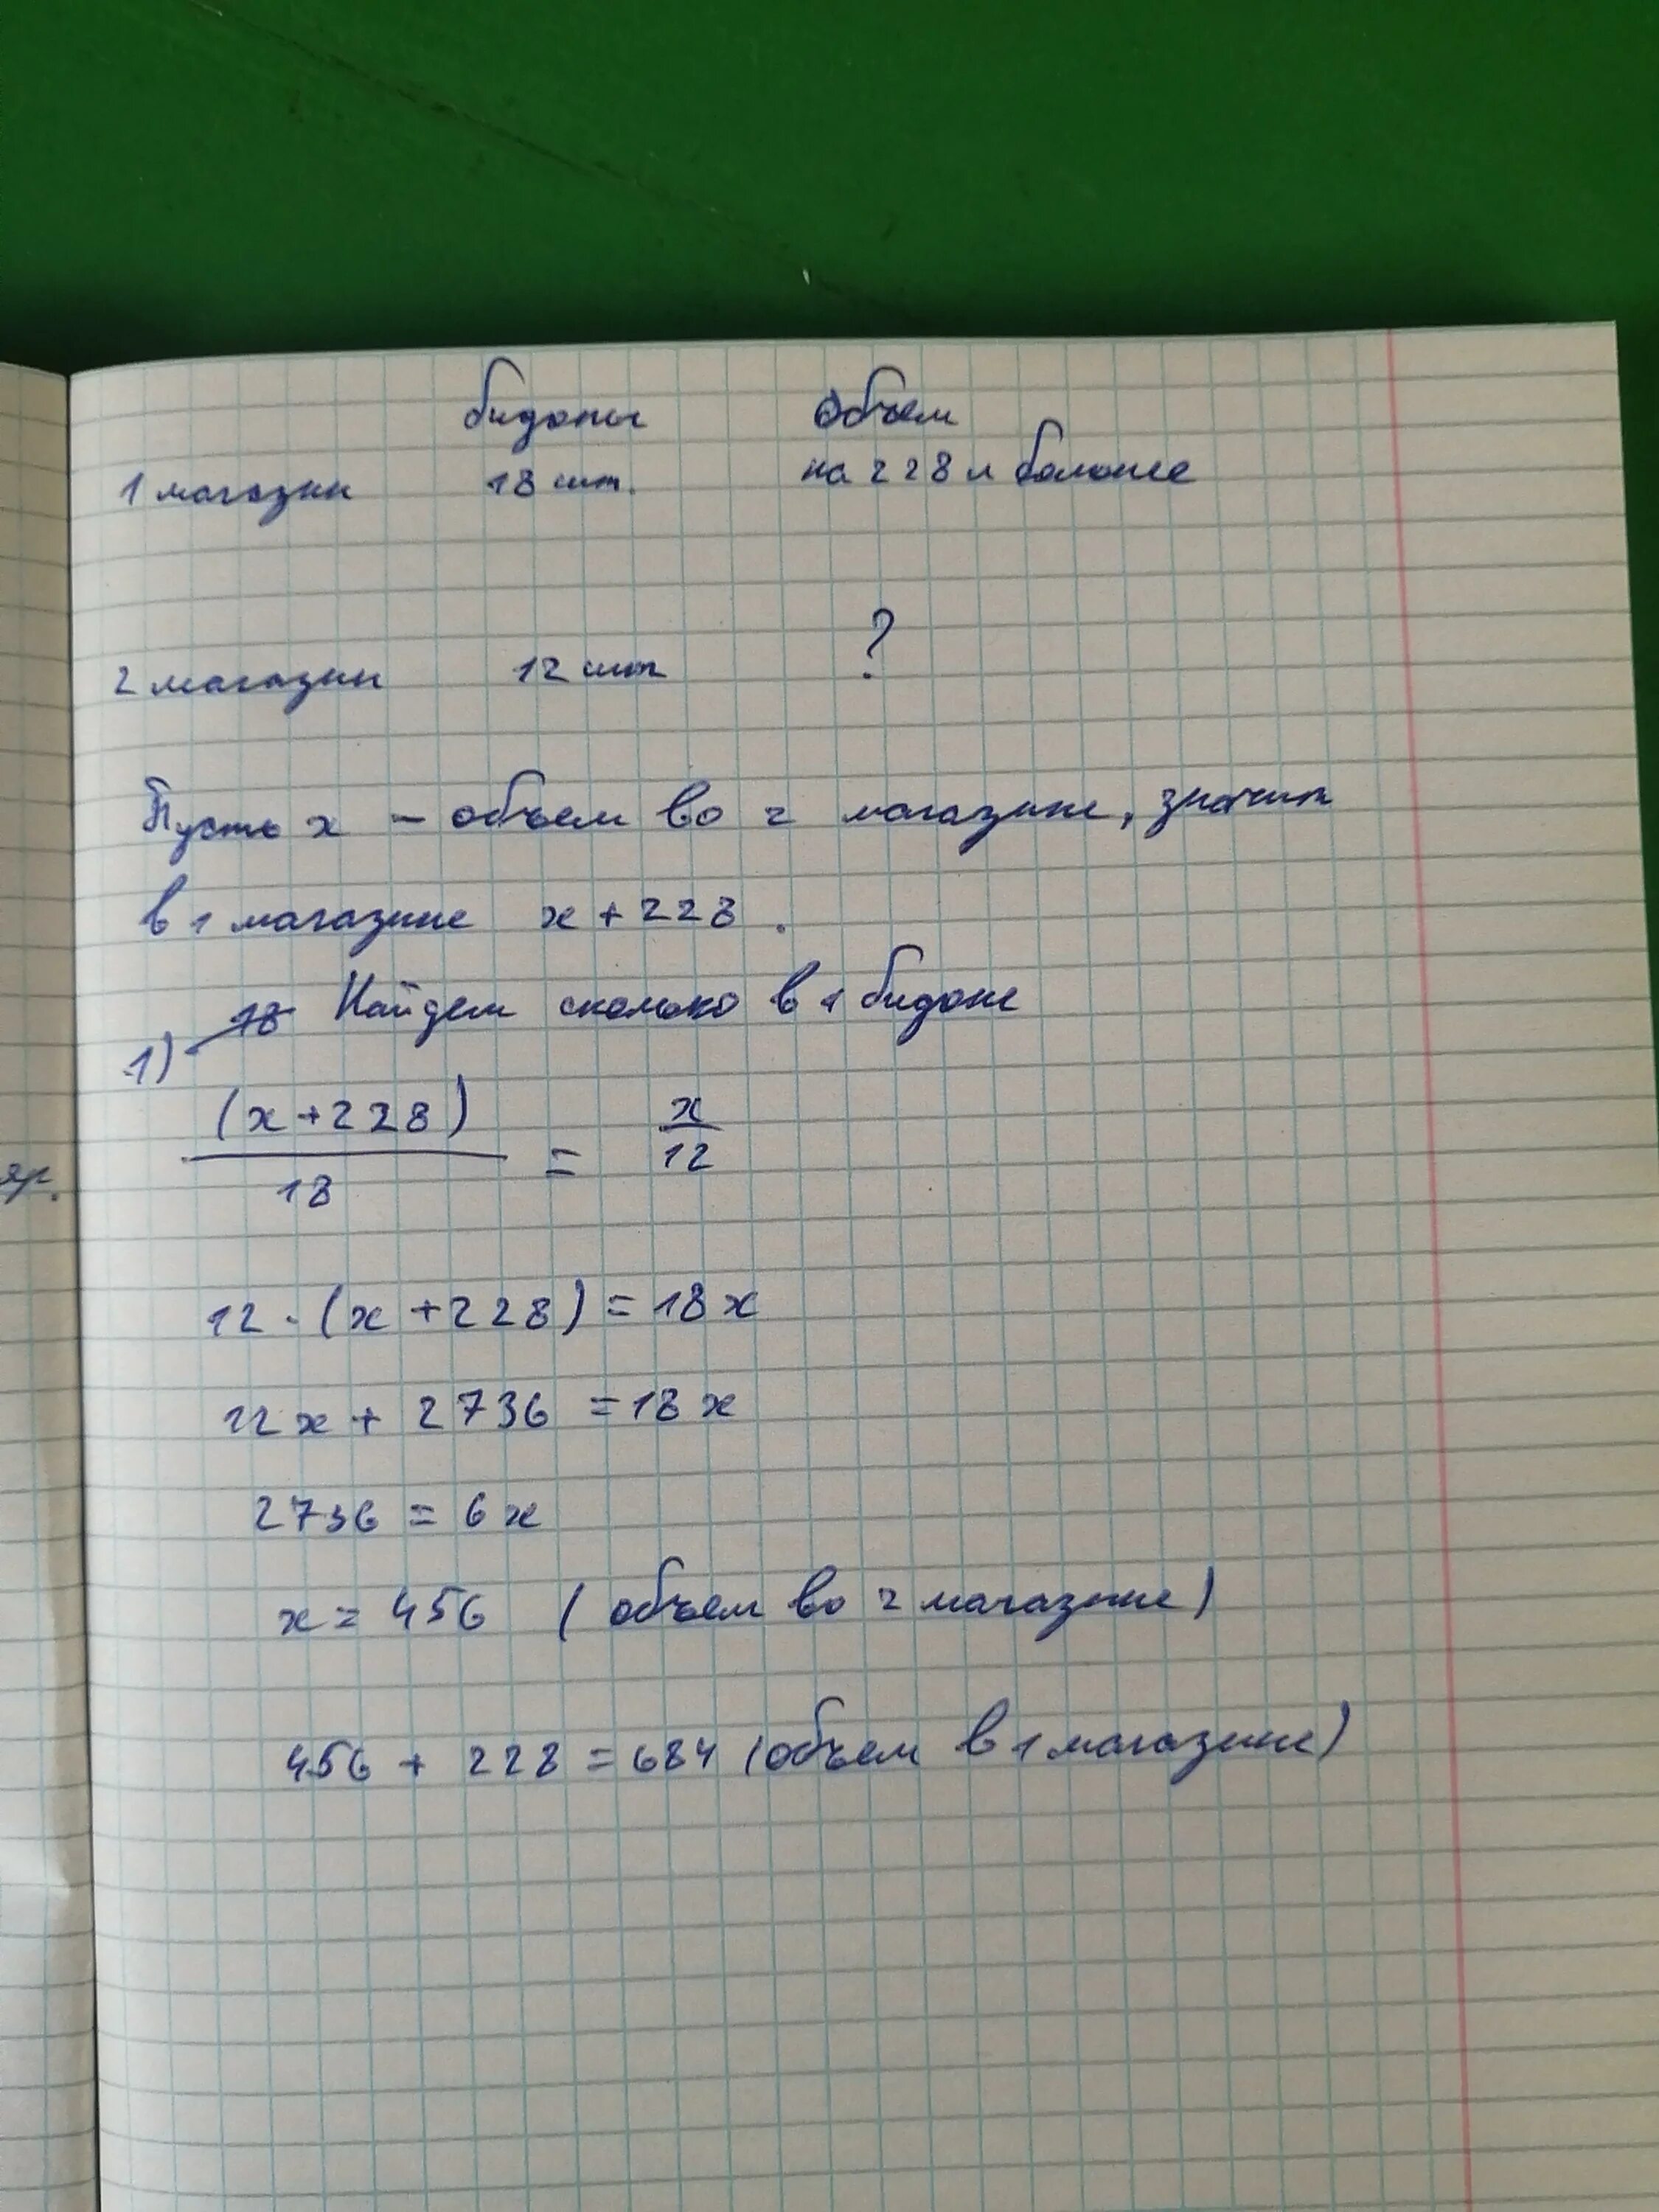 бидоны объем
1 магазин 18 шт. на 228 л больше
2 магазин 12 шт ?
Пусть x - объем во 2 магазине, значит
в 1 магазине x + 228.
1) 18 Найдем сколько в 1 бидоне
(x + 228) / 18 = x / 12
12 · (x + 228) = 18x
12x + 2736 = 18x
2736 = 6x
x = 456 (объем во 2 магазине)
456 + 228 = 684 (объем в 1 магазине)